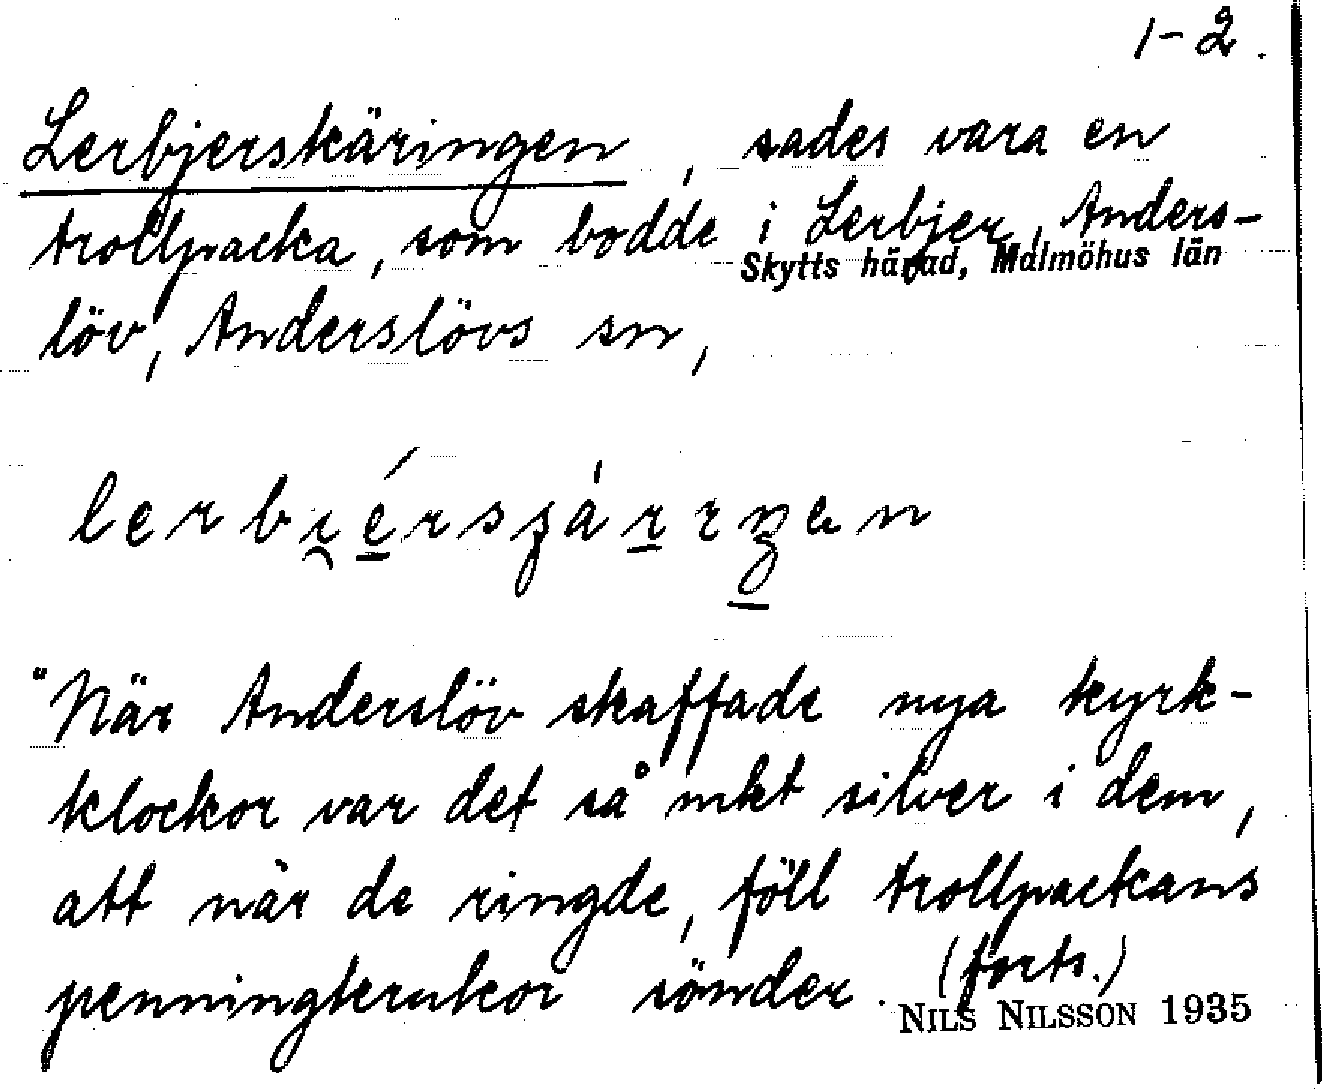 1-2.
Lerbjerskäringen, sades vara en
trollpacka, som bodde i Lerbjer, Anders-
Skytts härad, Malmöhus län
löv, Anderslövs sn,
"När Anderslöv skaffade nya kyrk-
klockor var det så mkt silver i dem,
att när de ringde, föll trollpackans
penningkrukor sönder. (forts.)
NILS NILSSON 1935